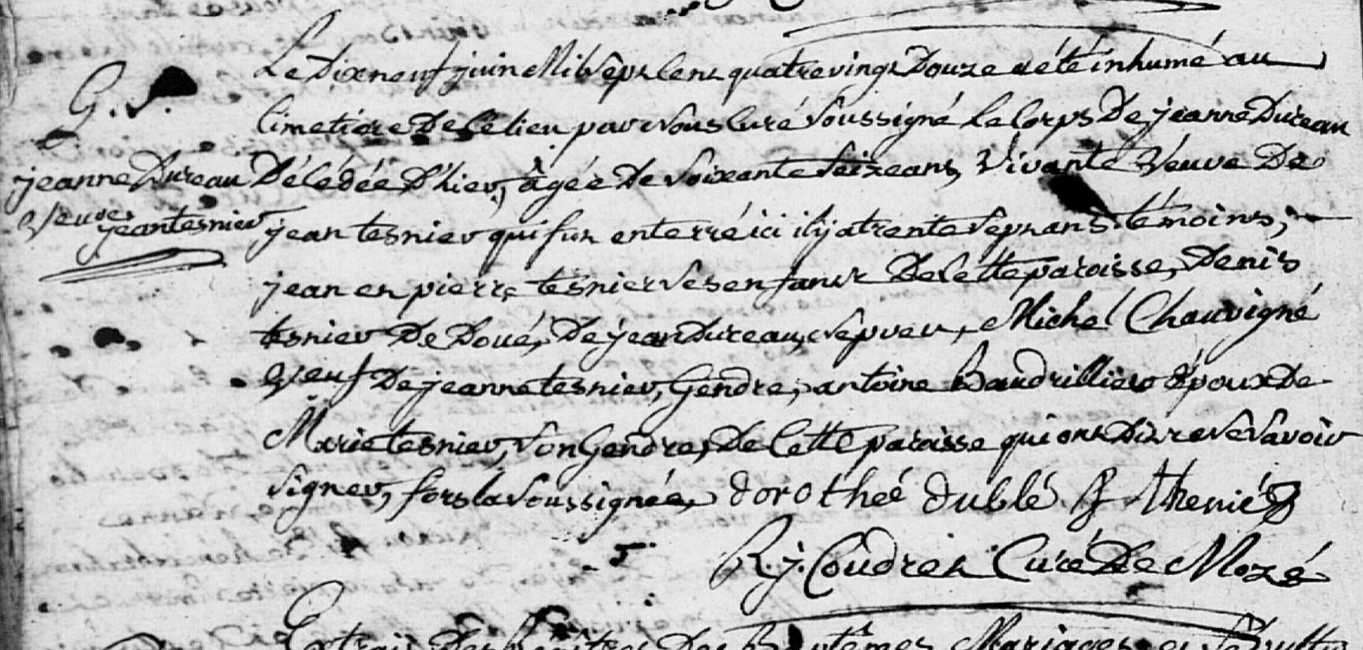 G. S.
jeanne Dureau
Veuve
jean tesnier
Le Dixneuf juin Mil Sept Cent quatre vingt Douze a été inhumé au
Cimetiere De Ce lieu par Nous Curé Soussigné Le Corps De jeanne Dureau
Décédée D'hier, âgée De Soixante Seize ans, Vivante Veuve De
jean tesnier qui fut enterré ici il y a trente Sept ans. témoins,
jean et pierre tesnier Ses enfants De Cette paroisse, Denis
tesnier De Doué, De jean Dureau, Népveu, Michel Chauvigné
Veuf De jeanne tesnier, Gendre, antoine Baudrillier Epoux De
Marie tesnier, Son Gendre, De Cette paroisse qui ont Dit ne Savoir
Signer, fors la Soussignée, dorotheé dublé
R. j. Coudret Curé De Mozé
Extrait Des Des Baptêmes Mariages et